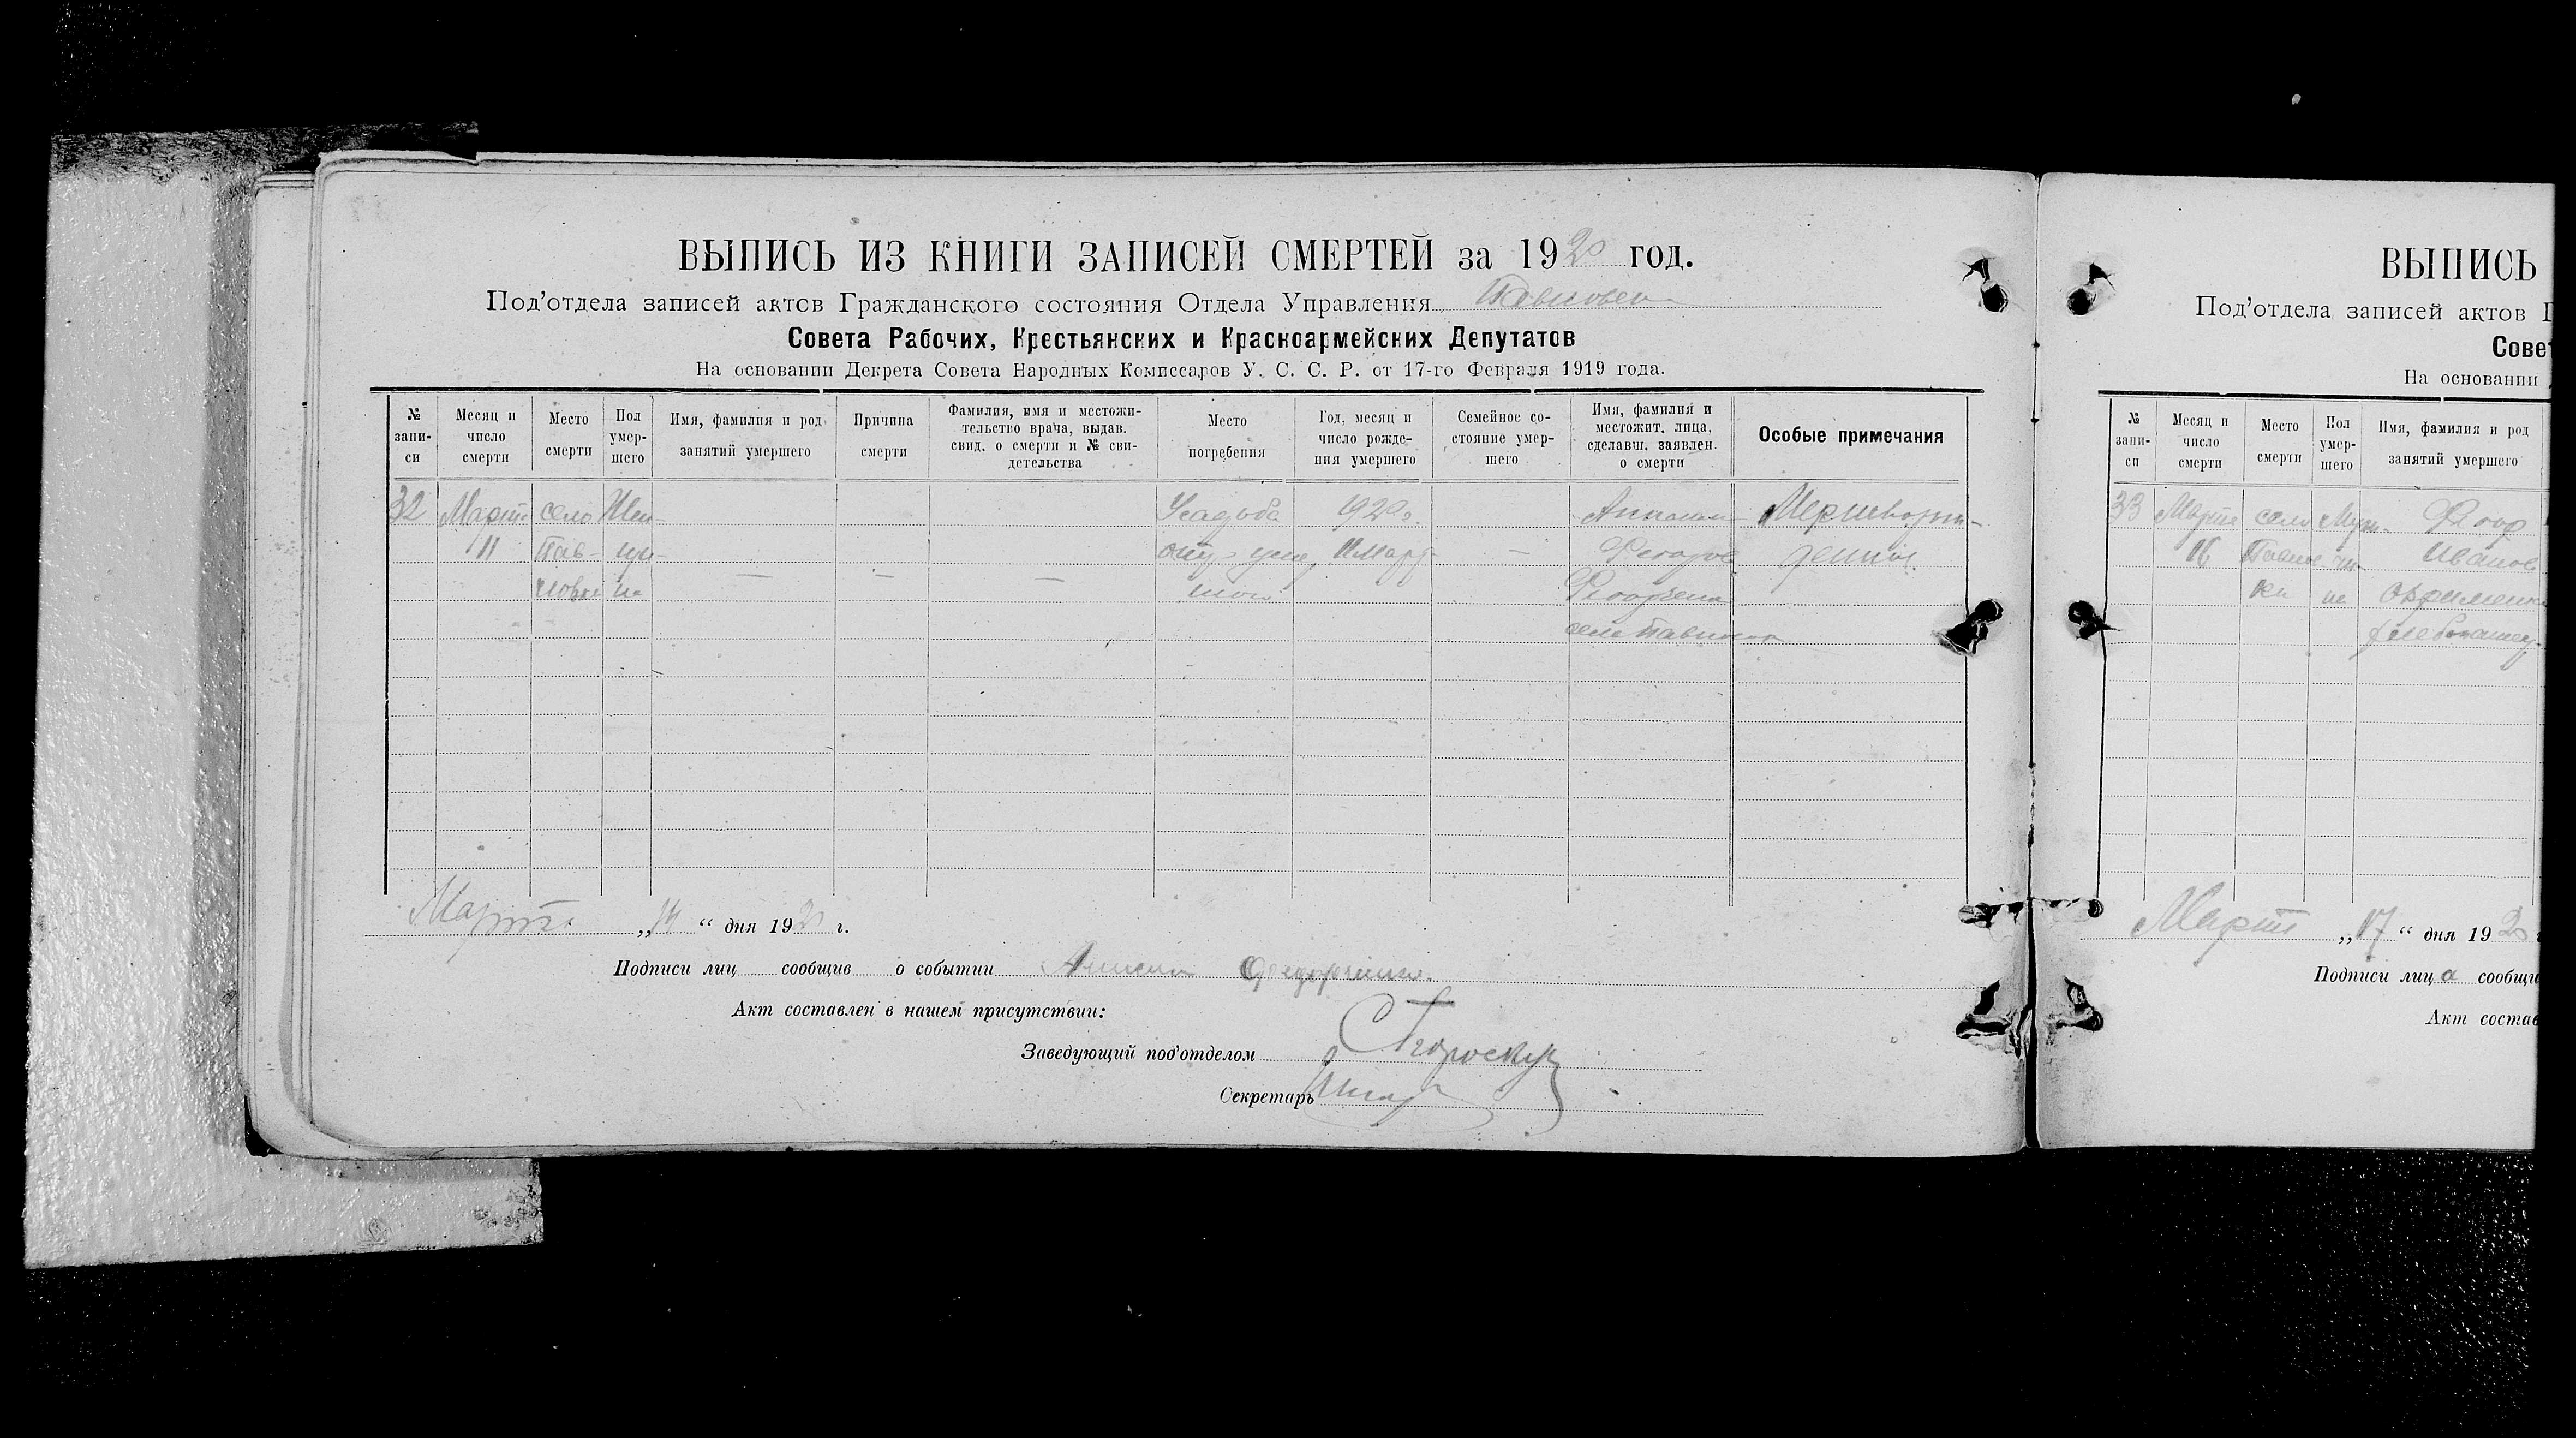 ВЫПИСЬ ИЗ КНИГИ ЗАПИСЕЙ СМЕРТЕЙ за 1920 год.
Под’отдела записей актов Гражданского состояния Отдела Управления
Совета Рабочих, Крестьянских и Красноармейских Депутатов
На основании Декрета Совета Народных Комиссаров У. С. С. Р. от 17-го Февраля 1919 года.
№ запи-си
Месяц и число смерти
Место смерти
Пол умер-шего
Имя, фамилия и род занятий умершего
Причина смерти
Фамилия, имя и местожи-тельство врача, выдав. свид. о смерти и № сви-детельства
Место погребения
Год, месяц и число рожде-ния умершего
Семейное со-стояние умер-шего
Имя, фамилия и местожит. лица, сделавш. заявлен. о смерти
Особые примечания
32 Март село Жен- Усадьба 1920 г. Мертворож-
11 Пав- щи- 11 март — денный
— — — на
село
Март „14“ дня 1920 г.
Подписи лиц сообщив о событии
Акт составлен в нашем присутствии:
Заведующий под’отделом
Секретарь
ВЫПИСЬ
Под’отдела записей актов Г
Совет
На основании
№ запи-си
Месяц и число смерти
Место смерти
Пол умер-шего
Имя, фамилия и род занятий умершего
33 Март село Муж-
16 чи- Иванов
ки на
Март „17“ дня 1920
Подписи лица сообщи
Акт состав